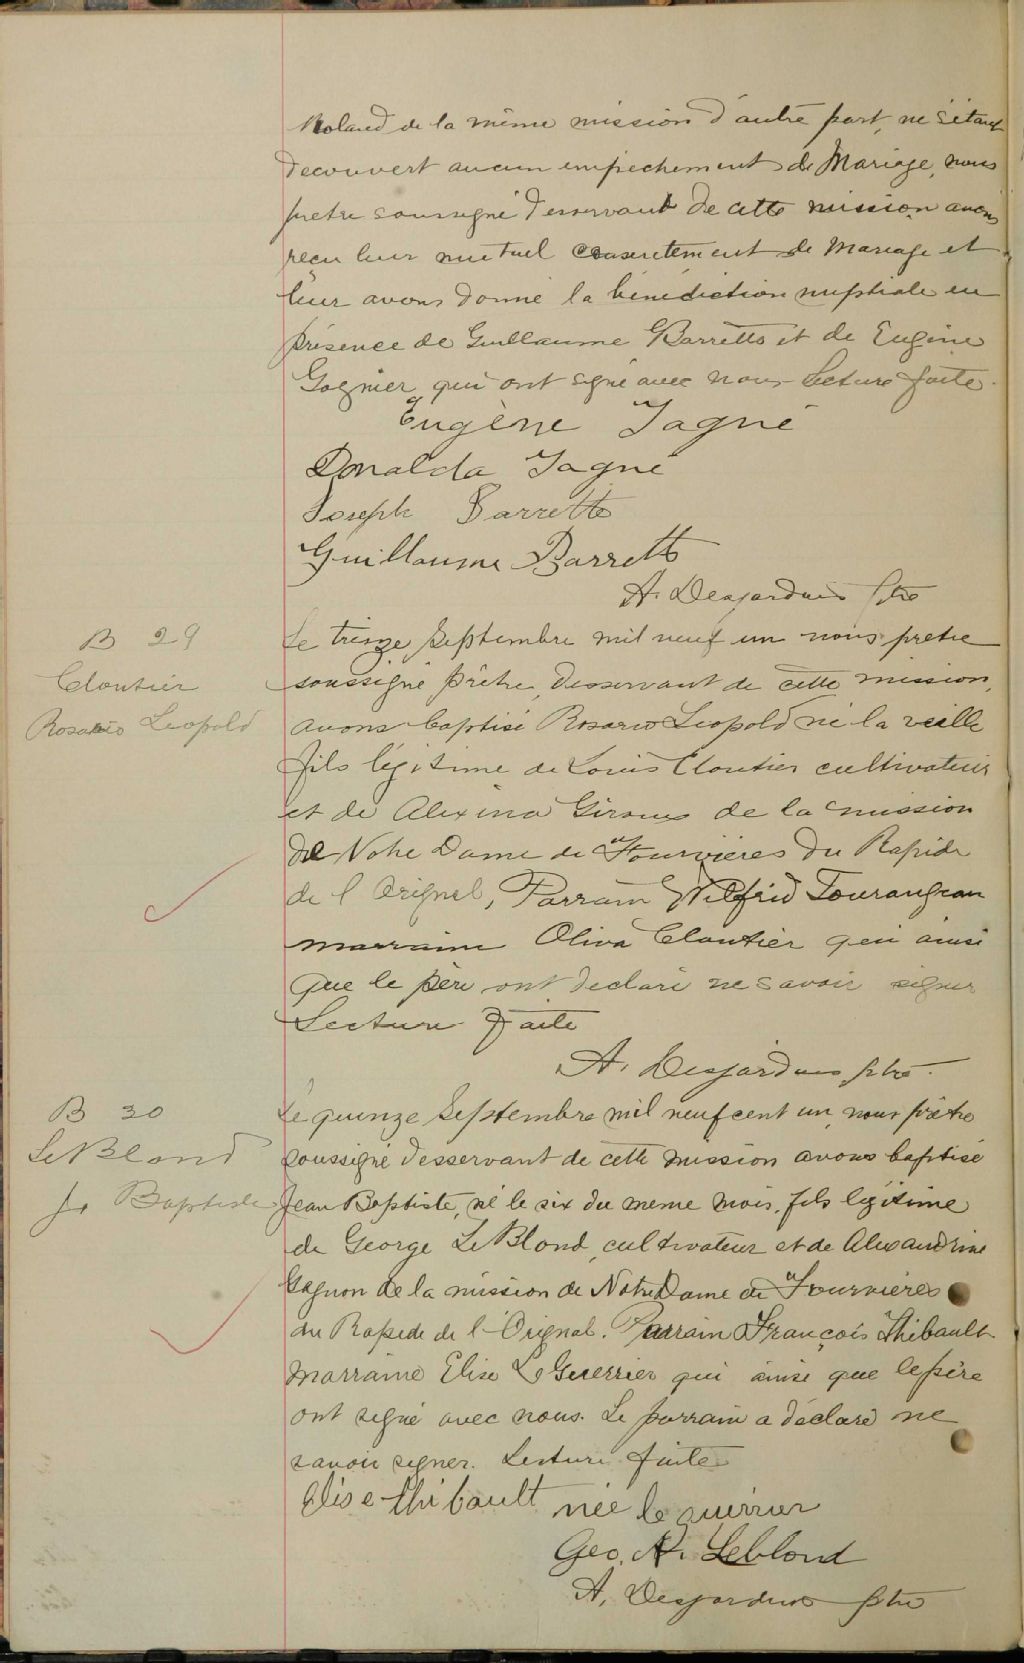 Roland de la même mission d'autre part, ne s'étant
decouvert aucun empechement de Mariage, nous
pretre soussigné desservant de cette mission avons
reçu leur mutuel consentement de Mariage et
leur avons donné la bénédiction nuptiale en
présence de Guillaume Barrette et de Eugène
Gagnier qui ont signé avec nous Lecture faite.
Eugène Gagné
Donalda Gagné
Joseph Barrette
Guillaume Barrette
A. Desjardins ptre
B 29
Cloutier
Rosario Leopold
Le treize Septembre mil neuf un nous pretre
soussigné prêtre, desservant de cette mission,
avons baptisé Rosario Leopold né la veille
fils légitime de Louis Cloutier cultivateur
et de Alexina Giroux de la mission
de Notre Dame de Fourvières du Rapide
de l Orignal, Parrain Wilfrid Tourangeau
marraine Oliva Cloutier qui ainsi
que le père ont déclaré ne savoir signer
Lecture faite
A. Desjardins ptre.
B 30
LeBlond
Jn Baptiste
Le quinze Septembre mil neuf cent un, nous prêtre
soussigné desservant de cette mission avons baptisé
Jean Baptiste, né le six du meme mois, fils légitime
de George LeBlond, cultivateur et de Alexandrine
Gagnon de la mission de Notre Dame de Fourvières
du Rapide de l'Orignal. Parrain François Thibault
Marraine Elise LeGuerrier qui ainsi que le père
ont signé avec nous. Le parrain a déclaré ne
savoir signer. Lecture faite
Elise Thibault née le guerrier
Geo. N. Leblond
A. Desjardins ptre